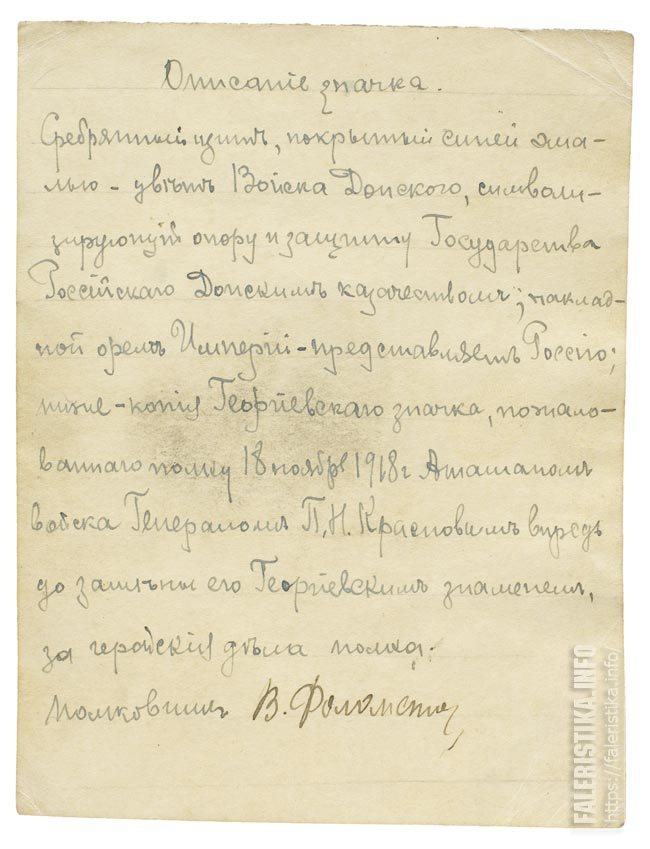 Описанiе значка.
Сребрянный щитъ, покрытый синей эма-
лью - цвѣтъ Войска Донского, символи-
зирующiй опору и защиту Государства
Россiйскаго Донскимъ казачествомъ; наклад-
ной орелъ Имперiи - представляетъ Россiю;
ниже - копiя Георгiевскаго значка, пожало-
ваннаго полку 18 ноября 1918 г Атаманомъ
войска Генераломъ П. Н. Красновымъ впредь
до замѣны его Георгiевскимъ знаменемъ,
за геройскiя дѣла полка.
Полковникъ В.
FALERISTIKA.INFO
https://faleristika.info/